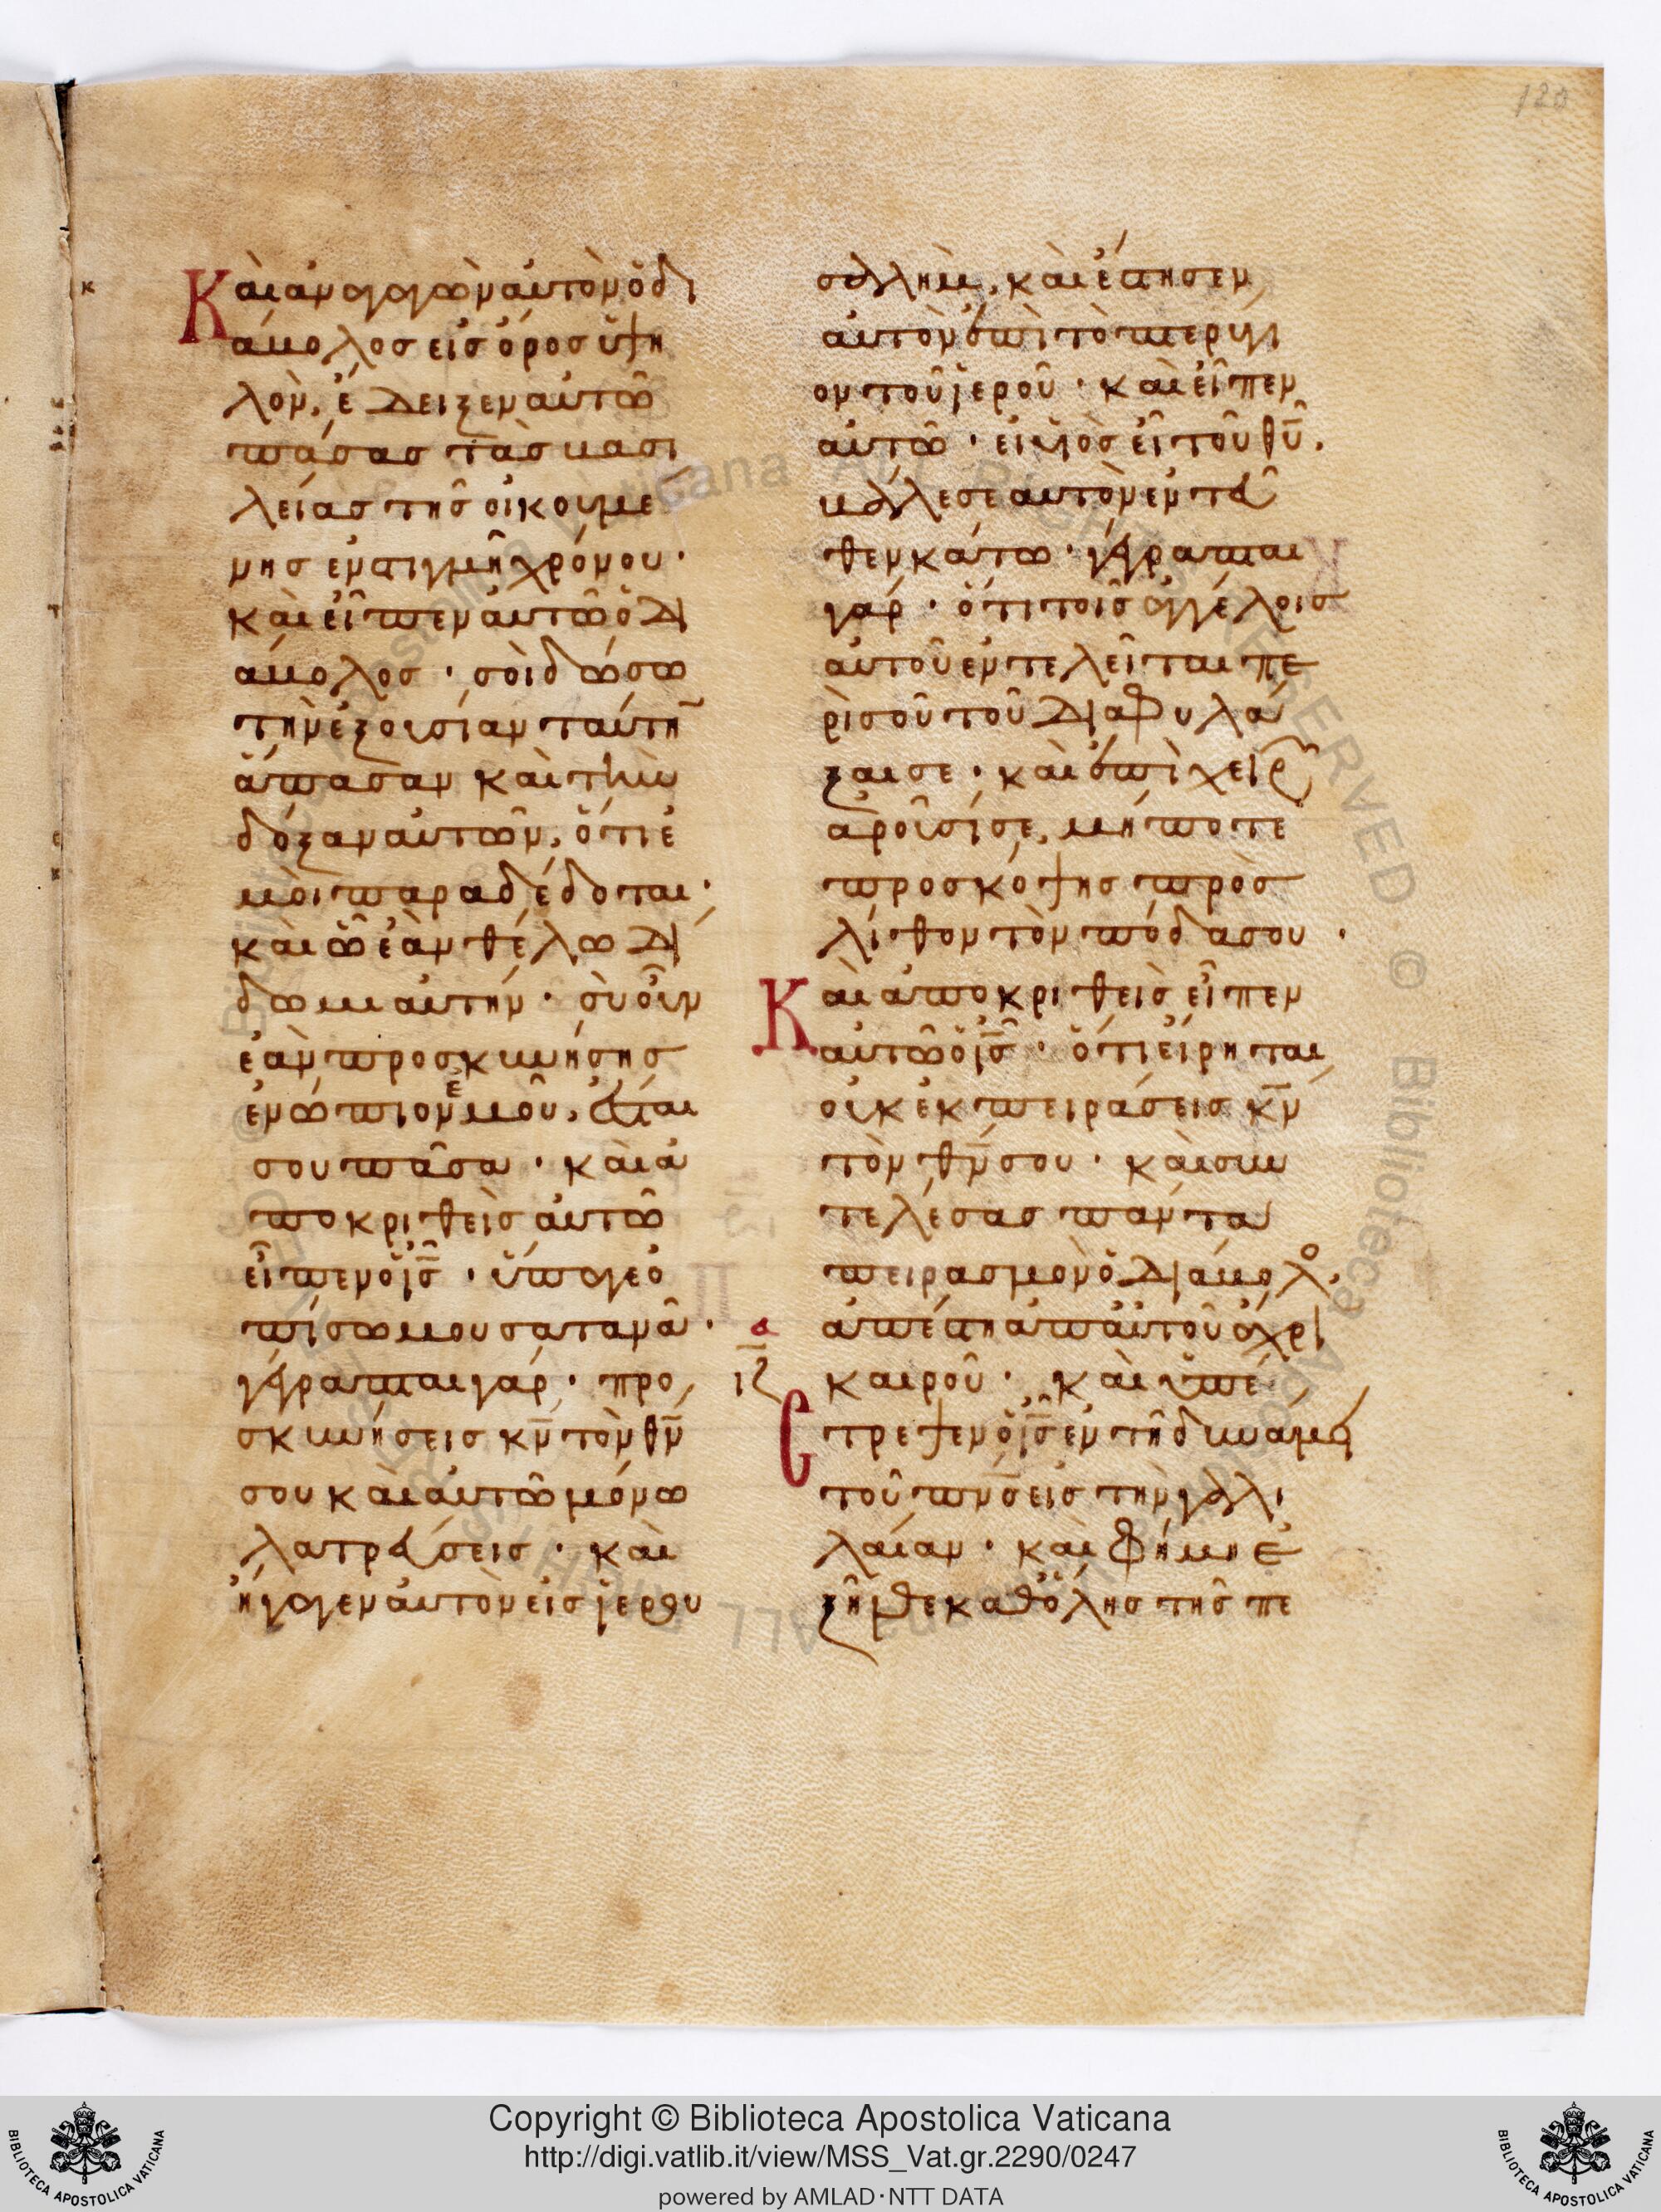 120
Καὶ ἀναγαγὼν αὐτὸν ὁ δι
άβολος εἰς ὄρος ὑψη
λὸν, ἔδειξεν αὐτῶ
πάσας τὰς βασι
λείας τῆς οἰκουμέ
νης ἐν στιγμῆ χρόνου·
καὶ εἶπεν αὐτῶ ὁ δι
άβολος· σοὶ δώσω
τὴν ἐξουσίαν ταύτη̄
ἅπασαν καὶ τὴν
δόξαν αὐτῶν, ὅτι ἐ
μοὶ παραδέδοται·
καὶ ὧ ἐὰν θέλω δί
δωμι αὐτήν· σὺ οὖν
ἐὰν προσκυνήσης
ἐνώπιον ἐμοῦ, ἔσται
σου πᾶσα· καὶ ἀ
ποκριθεὶς αὐτῶ
εἶπεν ὁ ις̅· ὕπαγε ὀ
πίσω μου σατανᾶ·
γέγραπται γάρ· προ
σκυνήσεις κν̅ τὸν θν̅
σου καὶ αὐτῶ μόνω
λατρεύσεις· καὶ
ἤγαγεν αὐτὸν εἰς ἱερου
σαλλὴμ, καὶ ἔστησεν
αὐτὸν ἐπὶ τὸ πτερύγι
ον τοῦ ἱεροῦ· καὶ εἶπεν
αὐτῶ· εἰ υἱὸς εἶ τοῦ θυ̅.
βάλε σεαυτὸν ἐντεῦ
θεν κάτω· γέγραπται
γάρ· ὅτι τοῖς ἀγγέλοις
αὐτοῦ ἐντελεῖται πε
ρὶ σοῦ τοῦ διαφυλά
ξαι σε· καὶ ἐπὶ χειρῶν
ἀροῦσί σε, μήποτε
προσκόψης πρὸς
λίθον τὸν πόδα σου·
Καὶ ἀποκριθεὶς εἶπεν
αὐτῶ ὁ ις̅· ὅτι εἴρηται,
οὐκ ἐκπειράσεις κν̅
τὸν θν̅ σου· καὶ συν
τελέσας πάντα
πειρασμὸν ὁ διάβολος,
ἀπέστη ἀπ αὐτοῦ ἄχρι
α
ιζ καιροῦ· καὶ ὑπέ
Στρεψεν ὁ ις̅ ἐν τῆ δυνάμει
τοῦ πνς̅ εἰς τὴν γαλι
λαίαν· καὶ φήμη ἐ
ξῆλθε καθ ὅλης τῆς πε
Copyright © Biblioteca Apostolica Vaticana
http://digi.vatlib.it/view/MSS_Vat.gr.2290/0247
powered by AMLAD·NTT DATA
BIBLIOTECA APOSTOLICA VATICANA
BIBLIOTECA APOSTOLICA VATICANA